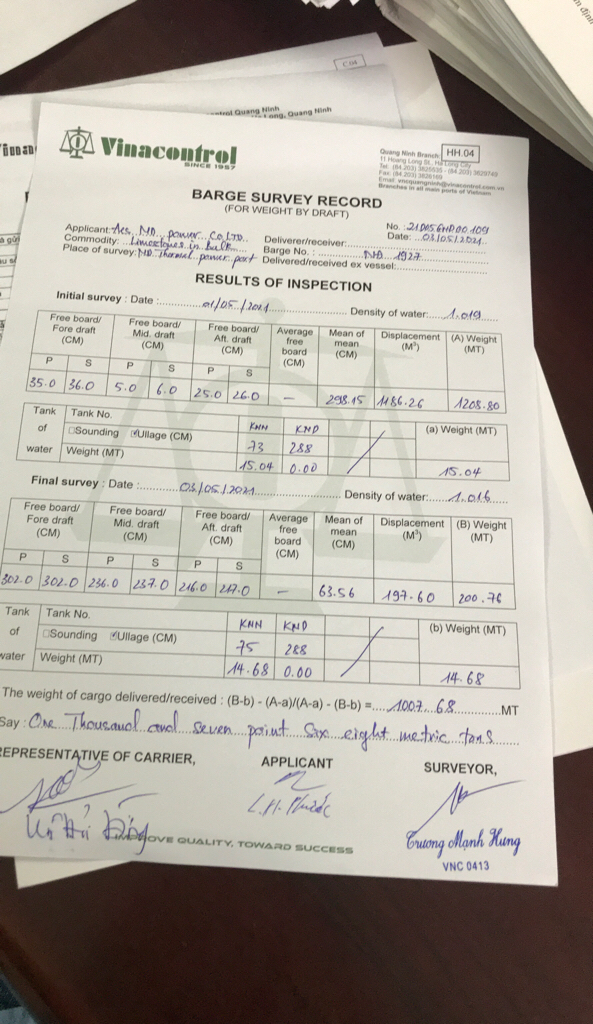 C.04
Quang Ninh
Long, Quang Ninh
Vinacontrol
SINCE 1957
Quang Ninh Branch:
HH.04
11 Hoang Long St., Ha Long City
Tel: (84.203) 3825535 - (84.203) 3829749
Fax: (84.203) 3826169
Email: vncquangninh@vinacontrol.com.vn
Branches in all main ports of Vietnam
BARGE SURVEY RECORD
(FOR WEIGHT BY DRAFT)
No. :
Date: 03/05/2021
Applicant: Aes MD power Co.LTD
Deliverer/receiver:
Commodity: in Bulk
Barge No. : NĐ 1927
Place of survey: MD Thermal power port
Delivered/received ex vessel:
RESULTS OF INSPECTION
Initial survey : Date : 01/05/2021 Density of water: 1.019
Free board/ Fore draft (CM) Free board/ Mid. draft (CM) Free board/ Aft. draft (CM) Average free board (CM) Mean of mean (CM) Displacement (M³) (A) Weight (MT)
P S P S P S
35.0 36.0 5.0 6.0 25.0 26.0 — 298.15 1186.26 1208.80
Tank of water Tank No. KNN KND (a) Weight (MT)
Sounding Ullage (CM) 73 288
Weight (MT) 15.04 0.00 15.04
Final survey : Date : 03/05/2021 Density of water: 1.016
Free board/ Fore draft (CM) Free board/ Mid. draft (CM) Free board/ Aft. draft (CM) Average free board (CM) Mean of mean (CM) Displacement (M³) (B) Weight (MT)
P S P S P S
302.0 302.0 236.0 237.0 216.0 217.0 — 63.56 197.60 200.76
Tank of water Tank No. KNN KND (b) Weight (MT)
Sounding Ullage (CM) 75 288
Weight (MT) 14.68 0.00 14.68
The weight of cargo delivered/received : (B-b) - (A-a)/(A-a) - (B-b) = 1007.68 MT
Say : One Thousand and seven point six eight metric tons
REPRESENTATIVE OF CARRIER, APPLICANT SURVEYOR,
L.H. Phước
Trương Mạnh Hùng
VNC 0413
IMPROVE QUALITY, TOWARD SUCCESS